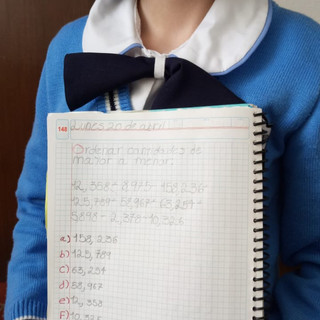 148 Lunes 20 de abril
Ordenar cantidades de
mayor a menor:
12,358- 8,975- 158,236-
125,789- 58,967- 63,254-
5,898- 2,378- 10,325
a) 158,236
b) 125,789
c) 63,254
d) 58,967
e) 12,358
F) 10,325